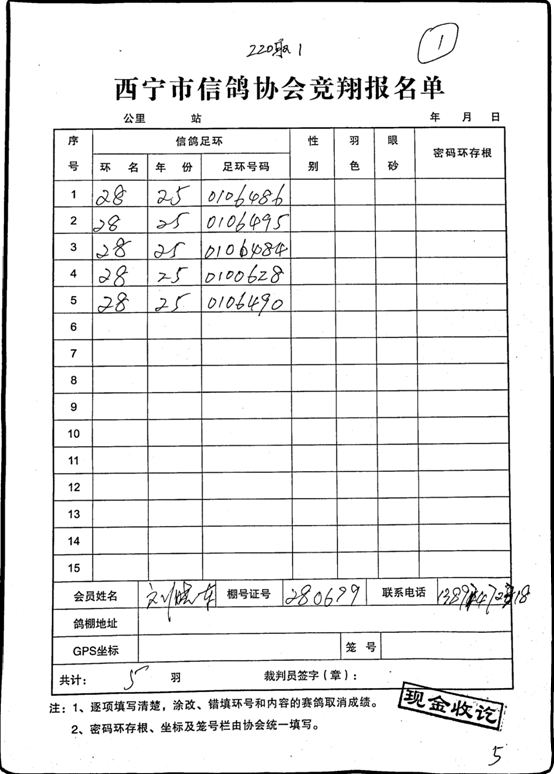 220取1
①
西宁市信鸽协会竞翔报名单
公里 站 年 月 日
序号 信鸽足环 性别 羽色 眼砂 密码环存根
环 名 年 份 足环号码
1 28 25 0106486
2 28 25 0106495
3 28 25 0106484
4 28 25 0100628
5 28 25 0106490
6
7
8
9
10
11
12
13
14
15
会员姓名 刘晓东 棚号证号 280679 联系电话
鸽棚地址
GPS坐标 笼 号
共计： 5 羽 裁判员签字（章）：
注：1、逐项填写清楚，涂改、错填环号和内容的赛鸽取消成绩。
2、密码环存根、坐标及笼号栏由协会统一填写。
现金收讫
5